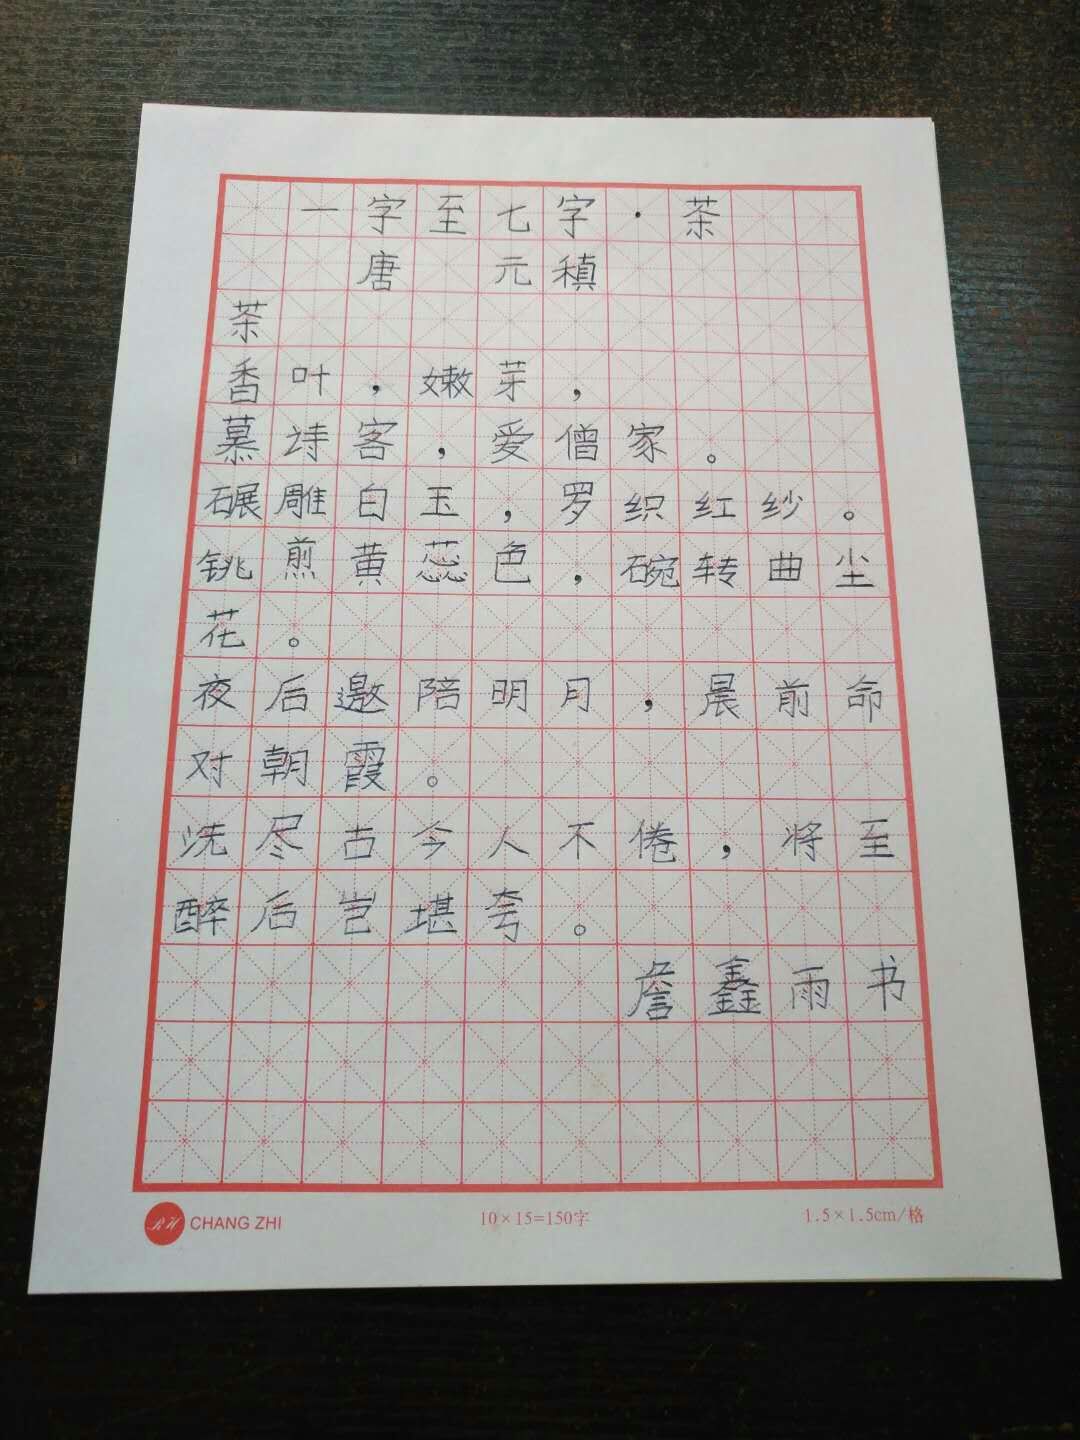 一字至七字·茶
唐 元稹
茶
香叶，嫩芽，
慕诗客，爱僧家。
碾雕白玉，罗织红纱。
铫煎黄蕊色，碗转曲尘
花。
夜后邀陪明月，晨前命
对朝霞。
洗尽古今人不倦，将至
醉后岂堪夸。
詹鑫雨书
RH CHANG ZHI
10×15=150字
1.5×1.5cm/格